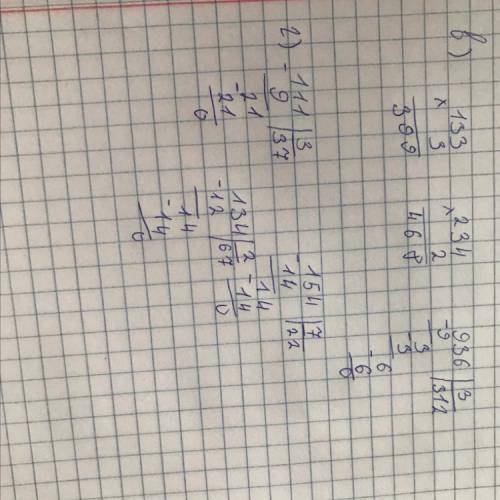 в)
133
× 3
399
× 234
2
468
936 | 3
- 9 | 312
3
- 3
6
- 6
0
г)
- 111 | 3
9 | 37
21
- 21
0
134 | 2
- 12 | 67
14
- 14
0
154 | 7
- 14 | 22
14
- 14
0